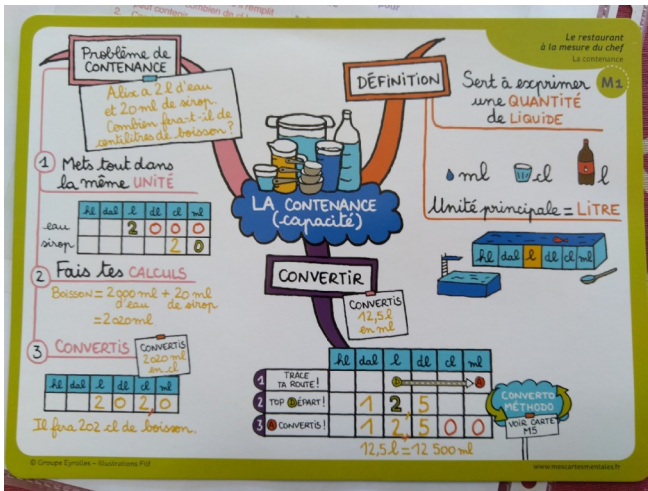 Le restaurant
à la mesure du chef
La contenance
M1
Problème de
CONTENANCE
Alix a 2 l d'eau
et 20 ml de sirop.
Combien fera-t-il de
centilitres de boisson ?
1 Mets tout dans
la même UNITÉ
hl dal l dl cl ml
eau 2 0 0 0
sirop 2 0
2 Fais tes CALCULS
Boisson = 2000 ml + 20 ml
d'eau de sirop
= 2020 ml
3 CONVERTIS
CONVERTIS
2020 ml
en cl
hl dal l dl cl ml
2 0 2, 0
Il fera 202 cl de boisson.
LA CONTENANCE
(capacité)
DÉFINITION
Sert à exprimer
une QUANTITÉ
de LIQUIDE
ml cl l
Unité principale = LITRE
hl dal l dl cl ml
CONVERTIR
CONVERTIS
12,5 l
en ml
hl dal l dl cl ml
1 TRACE
TA ROUTE !
D A
2 TOP DÉPART ! 1 2 5
3 A CONVERTIS ! 1 2, 5 0 0
12,5 l = 12 500 ml
CONVERTO
MÉTHODO
VOIR CARTE
M5
© Groupe Eyrolles – Illustrations Filf
www.mescartesmentales.fr